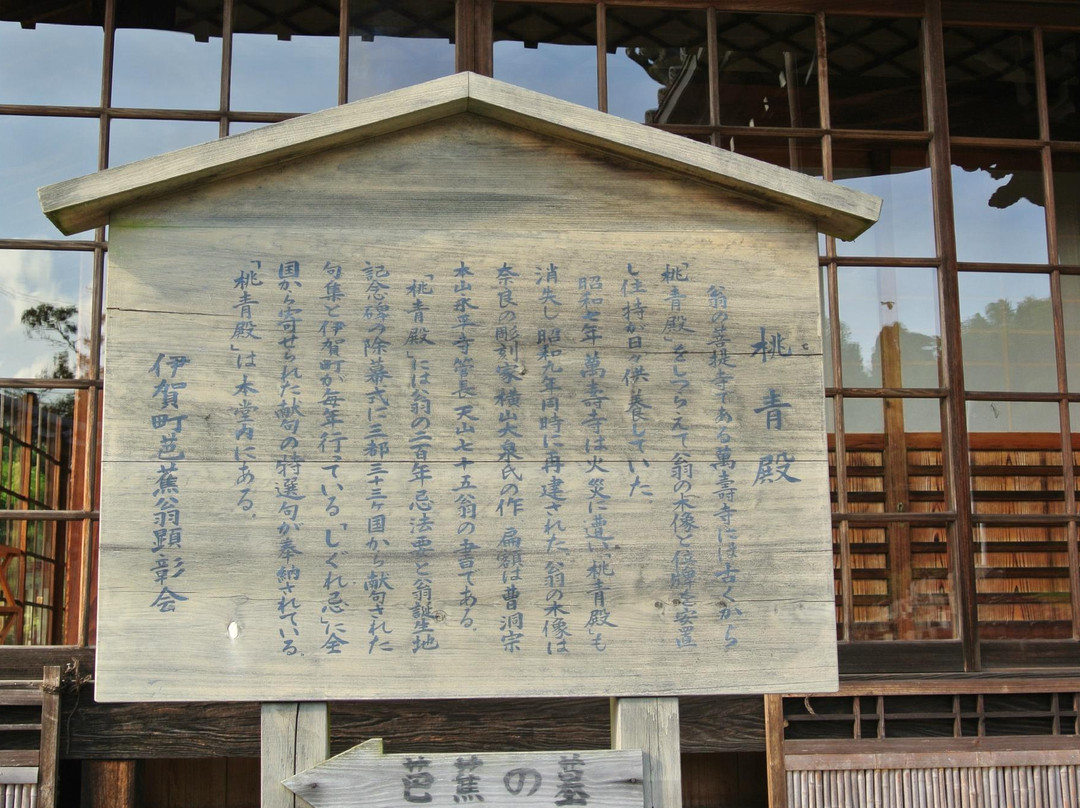 桃青殿
翁の菩提寺である萬壽寺には古くから
「桃青殿」をしつらえて翁の木像と位牌を安置
し住持が日々供養していた。
昭和七年 萬壽寺は火災に遭い「桃青殿」も
消失し昭和九年同時に再建された。翁の木像は
奈良の彫刻家横山大泉氏の作 扁額は曹洞宗
本山永平寺管長天山七十五翁の書である。
「桃青殿」には翁の二百年忌法要と翁誕生地
記念碑の除幕式に三都三十三ヶ国から献句された
句集と伊賀町が毎年行っている「しぐれ忌」に全
国から寄せられた献句の特選句が奉納されている。
「桃青殿」は本堂内にある。
伊賀町芭蕉翁顕彰会
芭蕉の墓